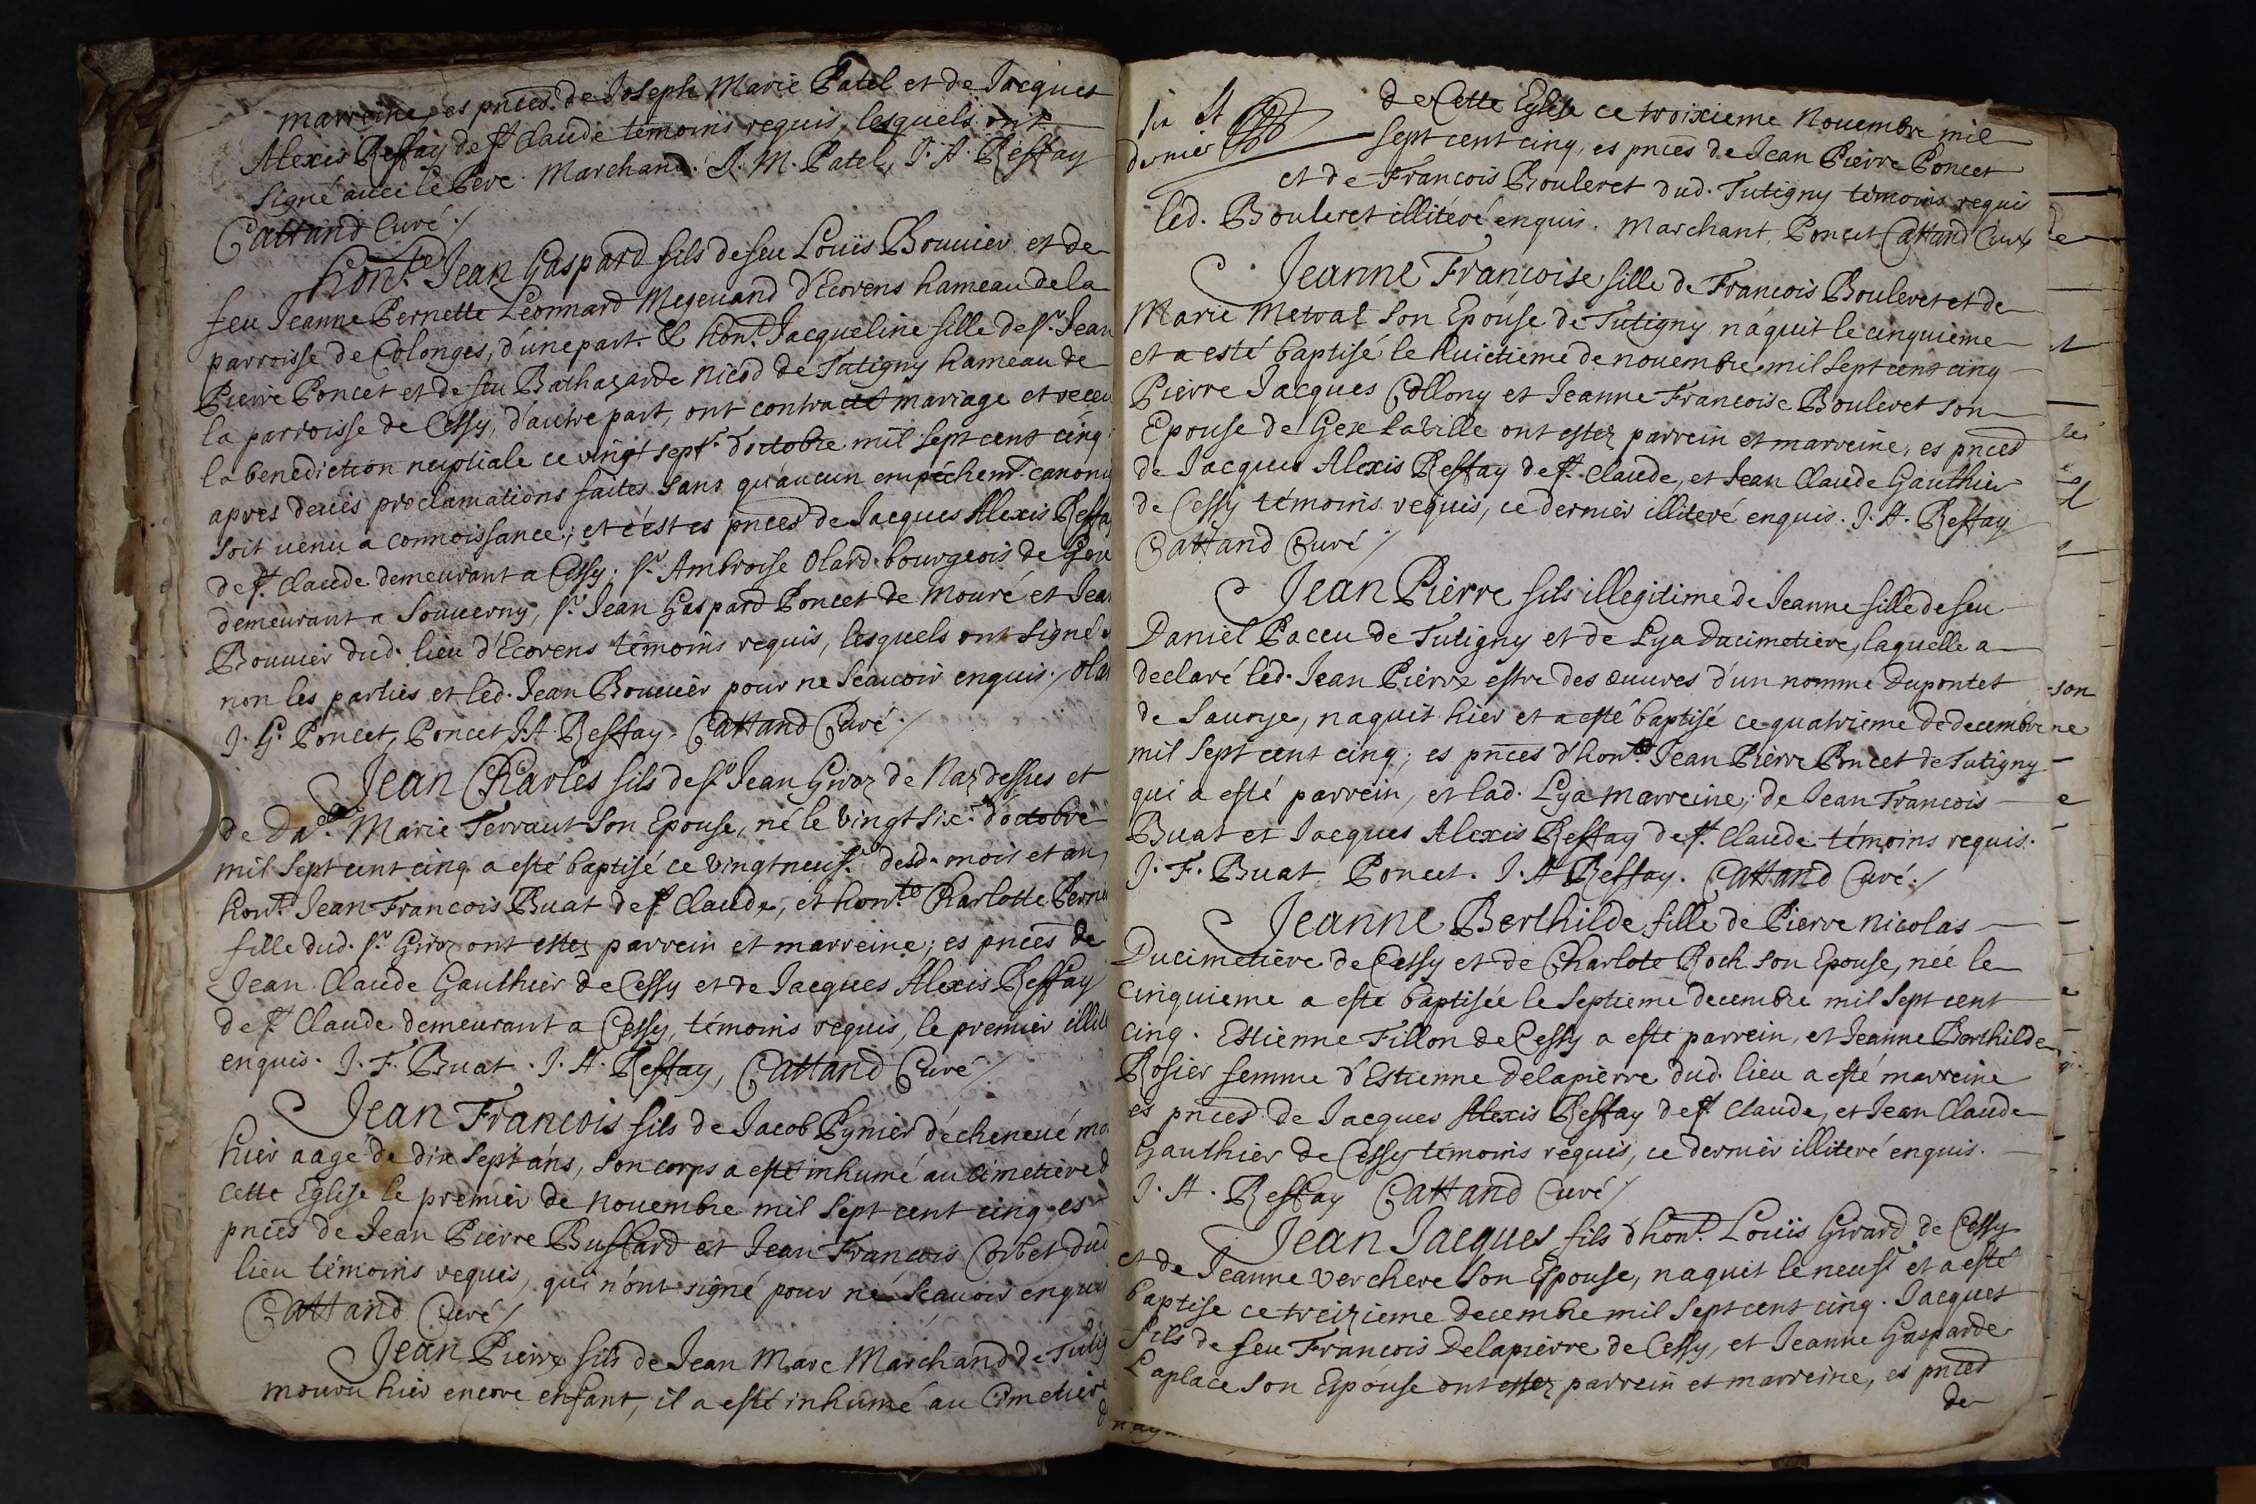 marreine, es pnces de Joseph Marie Patel et de Jacques
Alexis Reffay de st Claude témoins requis, lesquels ont
signé avec le Pere. Marchand. J. M. Patel, J. A. Reffay
Cattand Curé ./
hon.te Jean Gaspard fils de feu Louis Bouuier et de
feu Jeanne Pernette Léonnard d'Ecorens hameau de la
parroisse de Colonges, d'une part. & hon.te Jacqueline fille de sr. Jean
Pierre Poncet et de feu Balthazarde Nicod de Tutigny hameau de
la parroisse de Cessy, d'autre part, ont contracté mariage et receu
la benediction nuptiale ce vingt sept.e d'octobre mil sept cent cinq
apres deües proclamations faites sans qu'aucun empéchem.t canoni
soit venu a connoissance; et c'est es pnces de Jacques Alexis Reffa
de st. Claude demeurant a Cessy. sr. Ambroise Olard bourgeois de
demeurant a Souuerny, sr. Jean Gaspard Poncet de Mouré et Jean
Bouuier dud. lieu d'Ecorens témoins requis, lesquels ont signé
non les parties et led. Jean Bouuier pour ne sçauoir enquis ./ Olar
J. G. Poncet, Poncet, J. A. Reffay. Cattand Curé ./
Jean Charles fils de sr Jean Giroz de Naz dessus et
de Da.lle Marie Terraut son Epouse, né le vingt six.e d'octobre
mil sept cent cinq a esté baptisé ce vingt neuf.e desd. mois et an
hon.te Jean Francois Buat de st Claude, et hon.te Charlotte Perne
fille dud. sr. Giroz ont estez parrein et marreine; es pnces de
Jean Claude Gauthier de Cessy et de Jacques Alexis Reffay
de st Claude demeurant a Cessy, témoins requis, le premier illit
enquis. J. F. Buat. J. A. Reffay, Cattand Curé /
Jean Francois fils de Jacob Pynier d'écheneué mo
hier aagé de dix sept ans, son corps a esté inhumé au cimetiere d
cette Eglise le premier de nouembre mil sept cent cinq, es
pnces de Jean Pierre Bussard et Jean Francois Corbet dud
lieu témoins requis, qui n'ont signé pour né sçauoir enquis
Cattand Curé /
Jean Pierre fils de Jean Marc Marchand de Tutig
mouru hier encore enfant, il a esté inhumé au Cimetiere
d
dernier
de Cette Eglise ce troixieme Nouembre mil
sept cent cinq, es pnces de Jean Pierre Poncet
et de Francois Bouleret dud. Tutigny témoins requis
led. Bouleret illitéré enquis. Marchant, Poncet Cattand Curé
Jeanne Françoise fille de Francois Bouleret et de
Marie Metral son Epouse de Tutigny náquit le cinquieme
et a esté baptisé le huictieme de nouembre mil sept cent cinq
Pierre Jacques Collony et Jeanne Francoise Bouleret son
Epouse de Gex la Ville ont estez parrein et marreine, es pnces
de Jacques Alexis Reffay de st. Claude, et Jean Claude Gauthier
de Cessy témoins requis, ce dernier illiteré enquis. J. A. Reffay
Cattand Curé /
Jean Pierre fils illegitime de Jeanne fille de feu
Daniel Paceu de Tutigny et de Lya Ducimetiere, laquelle a
declaré led. Jean Pierre estre des œuures d'un nommé Dupontet
de, naquit hier et a esté baptisé ce quatrieme de decembre
mil sept cent cinq; es pnces d'hon.te Jean Pierre Poncet de Tutigny
qui a esté parrein, et lad. Lya marreine, de Jean Francois
Buat et Jacques Alexis Reffay de st. Claude témoins requis.
J. F. Buat Poncet. J. A Reffay. Cattand Curé ./
Jeanne Berthilde fille de Pierre Nicolas
Ducimetiere de Cessy et de Charlote Roch son Epouse, neé le
cinquieme a esté baptisée le septieme decembre mil sept cent
cinq. Estienne Fillon de Cessy a esté parrein, et Jeanne Berthilde
Rosier femme d'Estienne Delapierre dud. lieu a esté marreine
es pnces de Jacques Alexis Reffay de st. Claude, et Jean Claude
Gauthier de Cessy témoins requis, ce dernier illiteré enquis.
J. A. Reffay Cattand Curé /
Jean Jacques fils d'hon.te Loüis Girard de Cessy
et de Jeanne Verchere son Epouse, naquit le neuf.e et a esté
baptise ce treizieme decembre mil sept cent cinq. Jacques
fils de feu François Delapierre de Cessy, et Jeanne Gasparde
Laplace son Epouse ont estez parrein et marreine, es pnces
de